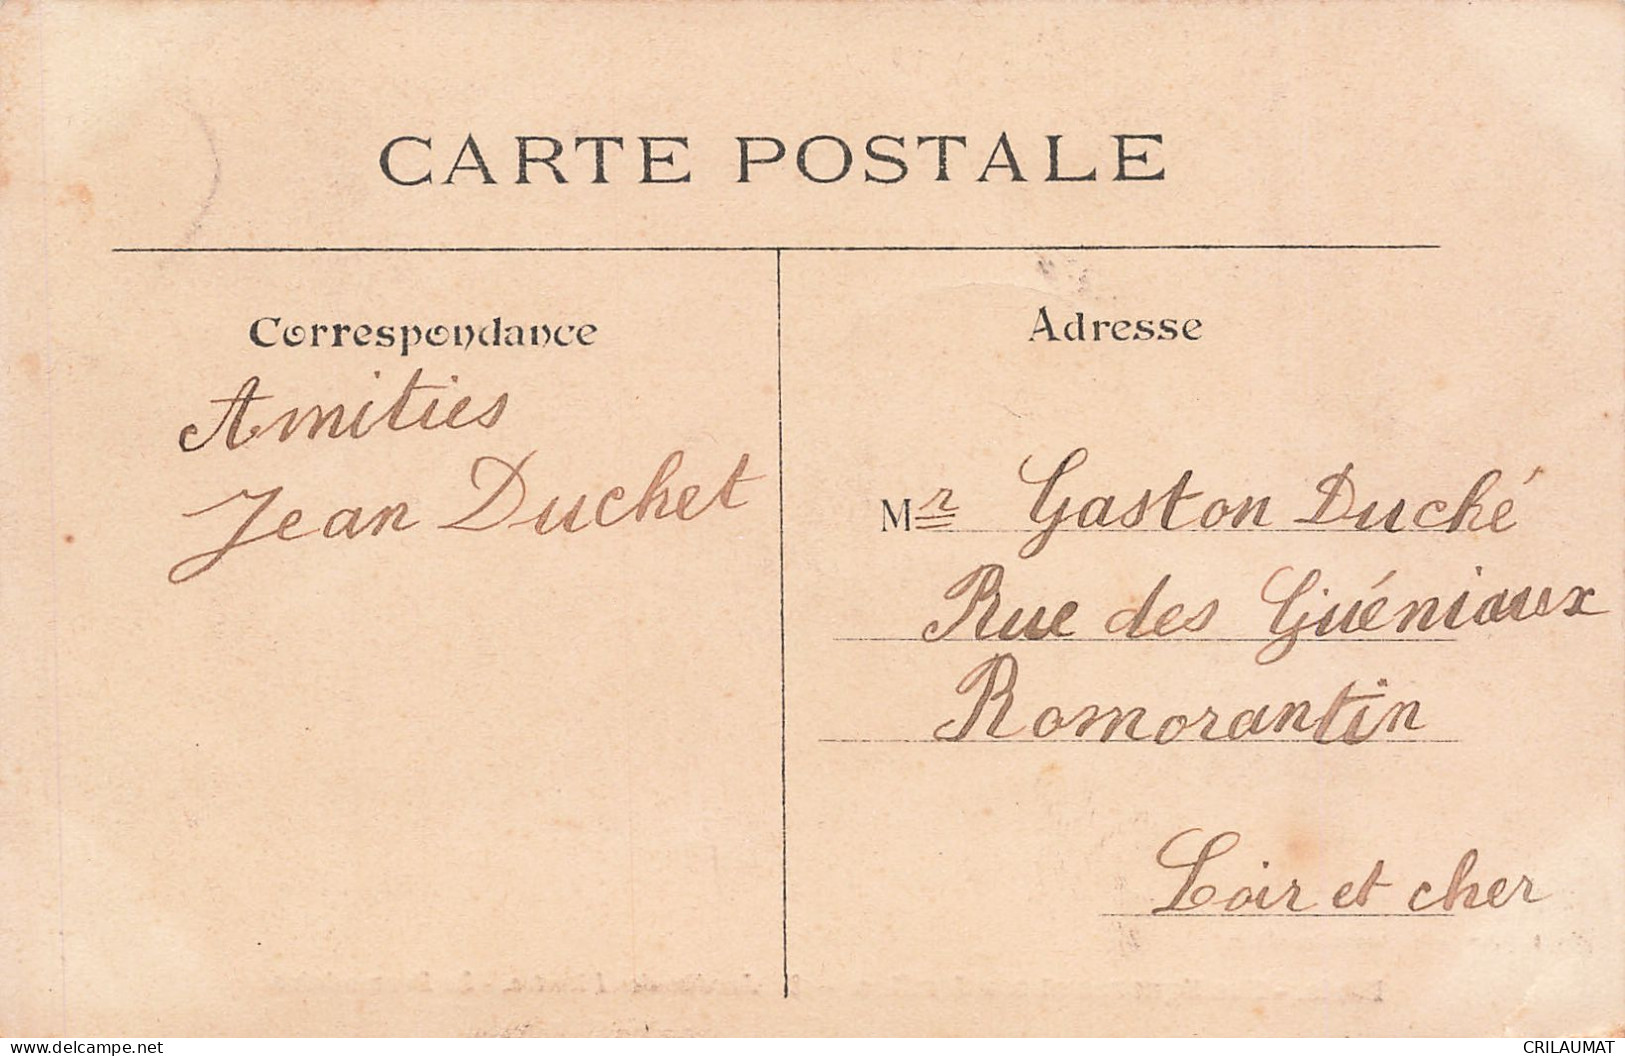 CARTE POSTALE
Correspondance
Amities
Jean Duchet
Adresse
Mr Gaston Duché
Rue des Guéniaux
Romorantin
Loir et cher
www.delcampe.net
CRILAUMAT